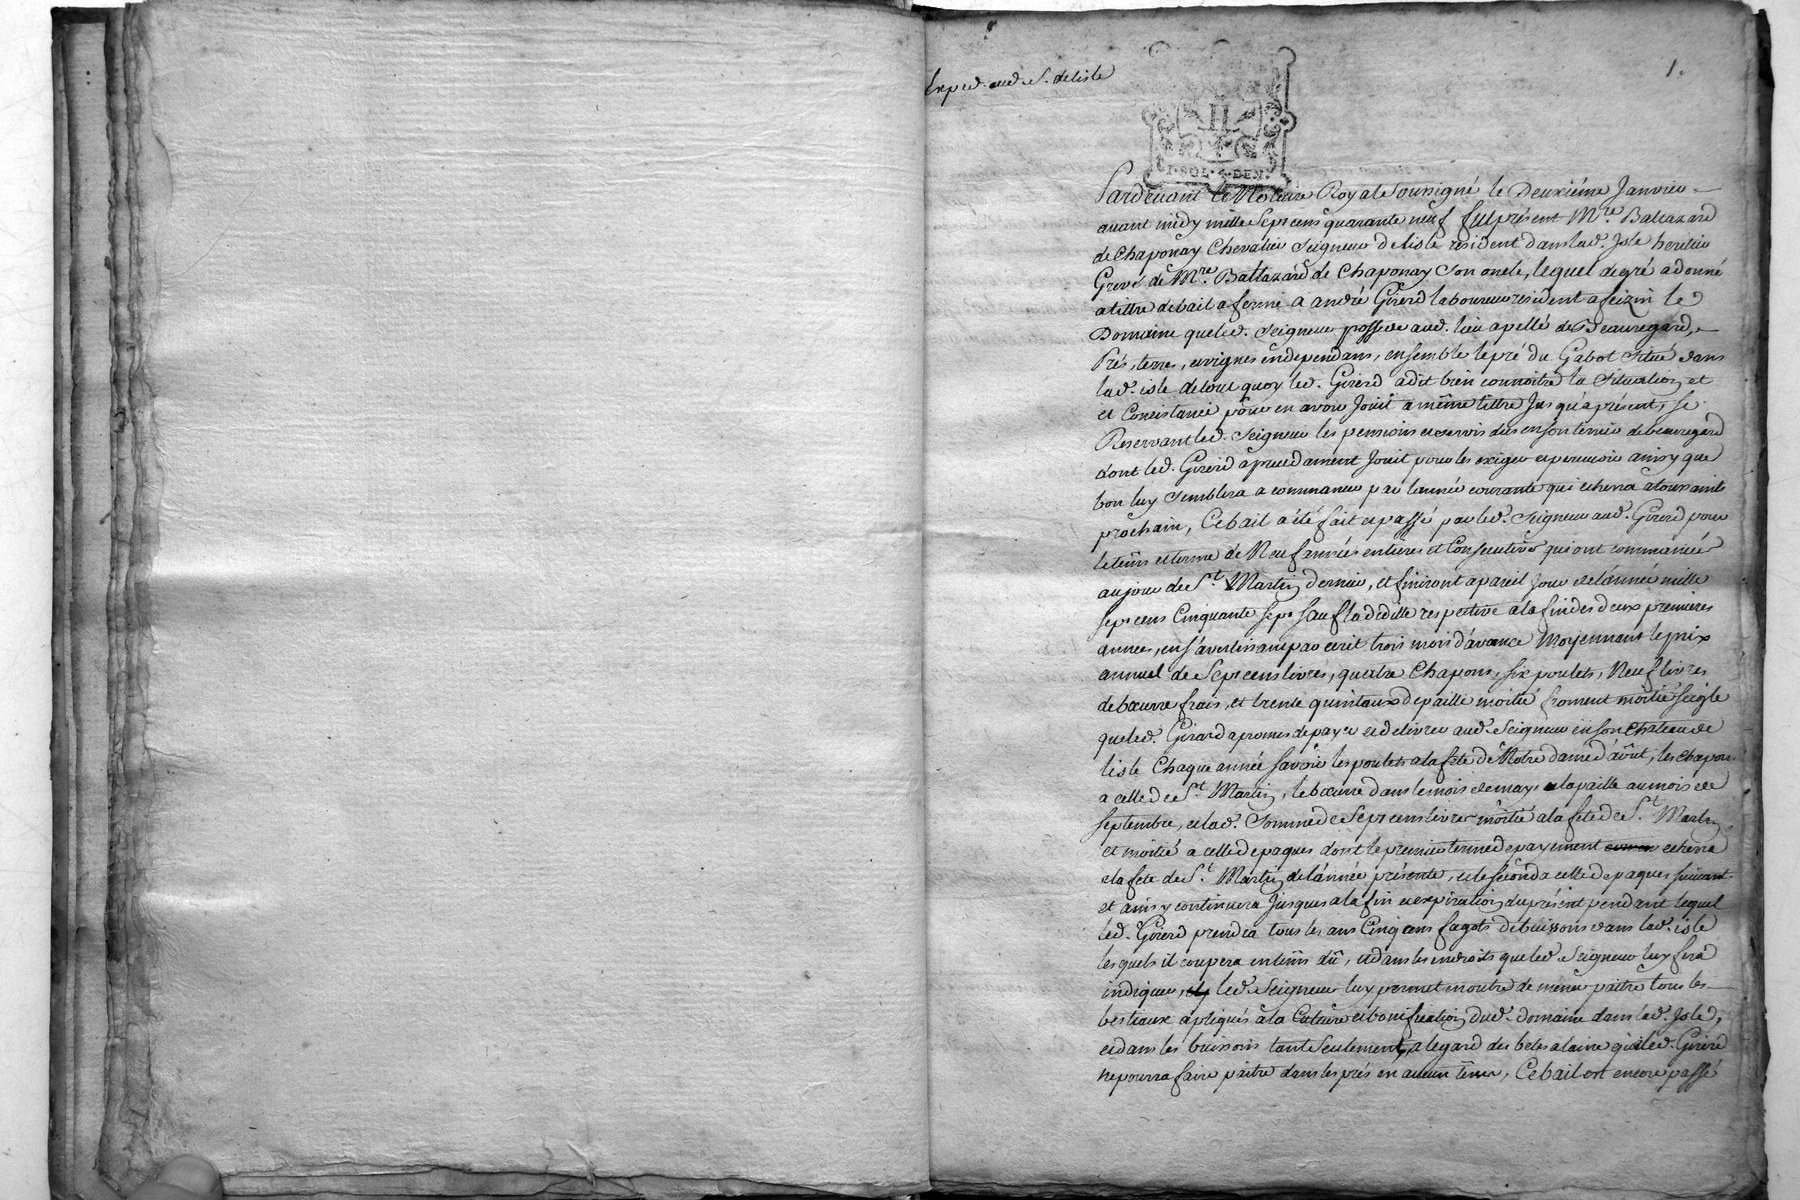 Exped. aud. S. delisle
1.
I·SOL·4·DEN.
Pardevant le Notaire Royal Soussigné le Deuxiéme Janvier
avant midy mille Sept cens quarante neuf fut présent Mre. Baltazard
de Chaponay Chevalier Seigneur delisle résident dans lad. Isle heritier
Grevé de Mre. Baltazard de Chaponay Son oncle, lequel de gré a donné
a tittre de bail a ferme a andré Girerd laboureur resident a feizin le
Domaine que led. Seigneur possede aud. lieu apellé de Beauregard,
Prés, terres, et vignes en dependans, ensemble le pré du Gabot Situé dans
lad. isle de tout quoy led. Girerd a dit bien connoitre la Situation et
et Consistance pour en avoir Jouit a même tittre Jusqu'a présent, se
Reservant led. Seigneur les pensions et servis dus en son terrier de beauregard
dont led. Girerd a precedament Jouit pour les exiger et percevoir ainsy que
bon luy Semblera a commancer par lannée courante qui echerra a toussaint
prochain, Ce bail a été fait et passé par led. Seigneur aud. Girerd pour
le tems et terme de Neuf années entieres et Consecutives qui ont commancées
au jour de St. Martin dernier, et finiront a pareil jour de lannée mille
sept cens Cinquante sept sauf la deditte respective a la fin des deux premieres
années, en s'avertissant par ecrit trois mois d'avance Moyennant le prix
annuel de Sept cens livres, quatre Chapons, six poulets, Neuf livres
de boeurre frais, et trente quintaux de paille moitié froment moitié seigle
que led. Girard a promis de payer et delivrer aud. Seigneur en son Chateau de
lisle Chaque année savoir les poulets a la fête de Notre dame d'août, les chapons
a celle de St. Martin, le boeurre dans le mois de may, et la paille au mois de
septembre, et lad. Somme de Sept cens livres moitié a la fête de St. Martin
et moitié a celle de paques dont le premier terme de payement echerra
a la fête de St. Martin de lannée présente, et le second a celle de paques suivant
et ainsy continuera Jusques a la fin et expiration du présent pendant lequel
led. Girerd prendra tous les ans Cinq cens fagots de buissons dans lad. isle
lesquels il coupera en tems dû, et dans les endroits que led. Seigneur luy fera
indiquer, led. Seigneur luy permet en outre de mener paitre tous les
bestiaux apliqués a la Culture et bonification dud. domaine dans lad. Isle,
et dans les buissons tant Seulement, a legard des betes a laine que led. Girerd
ne pourra faire paitre dans les prés en aucun tems, Ce bail est encore passé